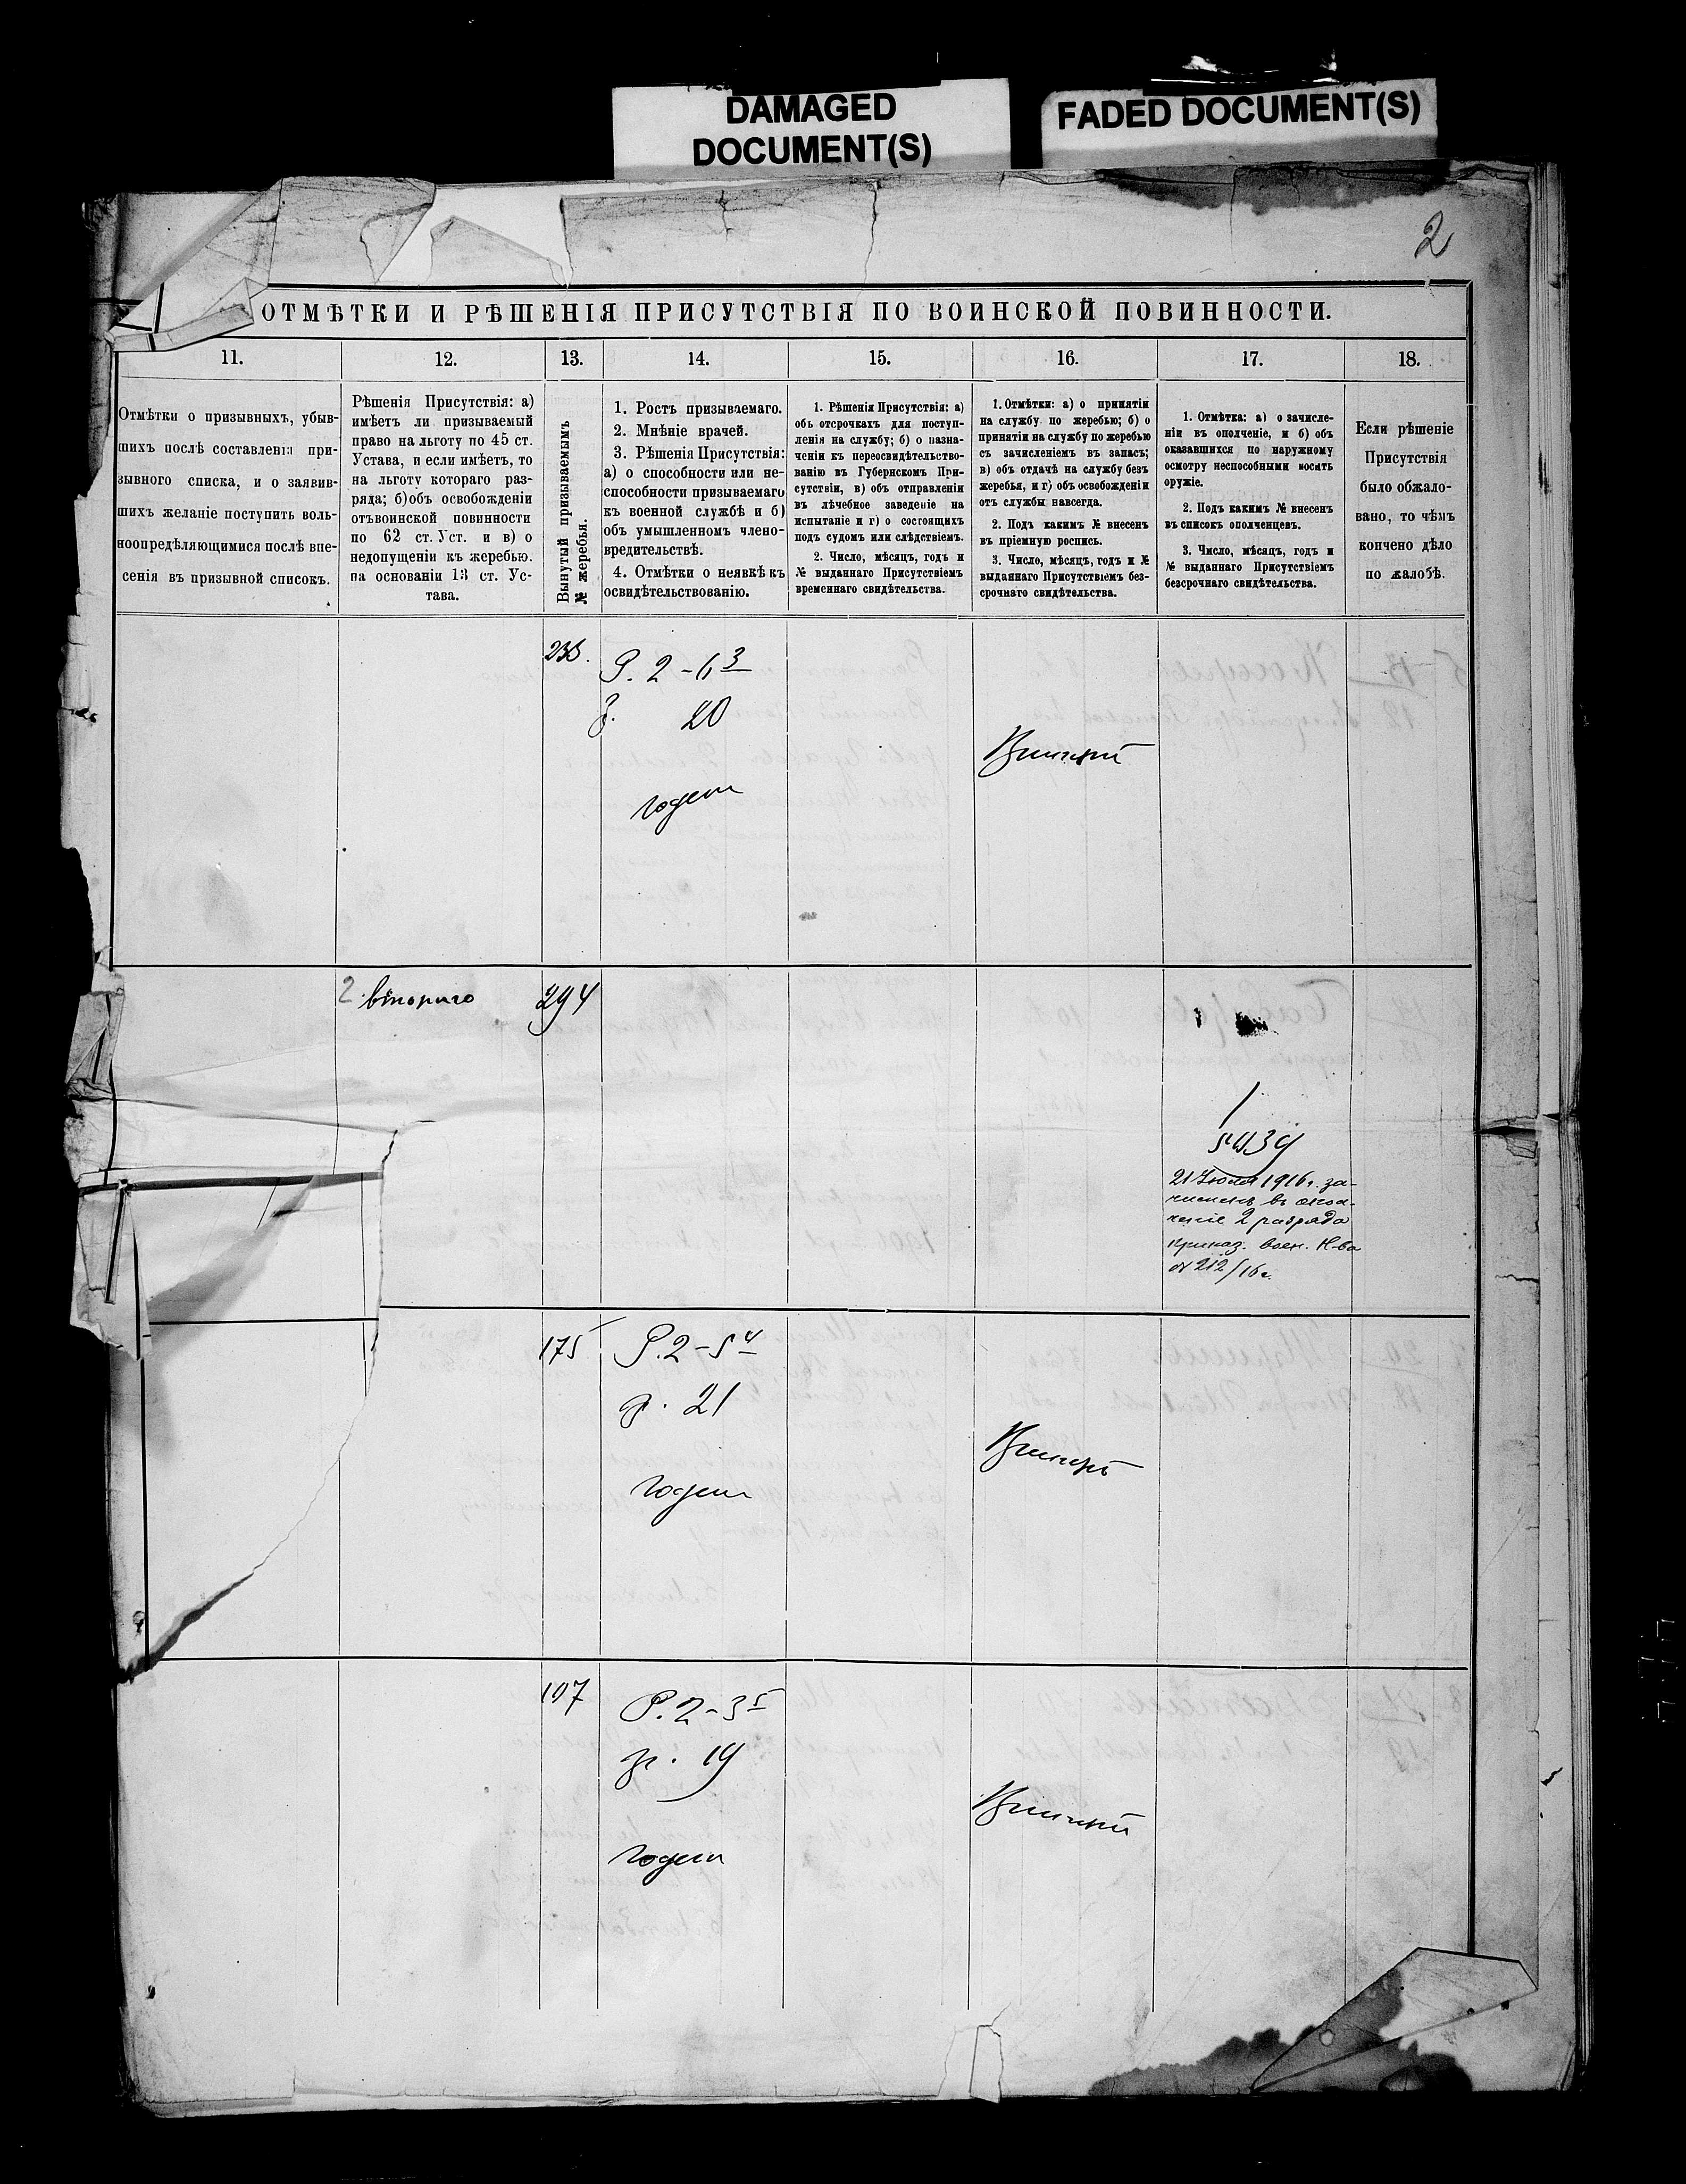 DAMAGED
DOCUMENT(S)
FADED DOCUMENT(S)
2
ОТМѢТКИ И РѢШЕНІЯ ПРИСУТСТВІЯ ПО ВОИНСКОЙ ПОВИННОСТИ.
11.
Отмѣтки о призывныхъ, убыв-
шихъ послѣ составленія при-
зывного списка, и о заявив-
шихъ желаніе поступить воль-
ноопредѣляющимися послѣ вне-
сенія въ призывной списокъ.
12.
Рѣшенія Присутствія: а)
имѣетъ ли призываемый
право на льготу по 45 ст.
Устава, и если имѣетъ, то
на льготу котораго раз-
ряда; б) объ освобожденіи
отъ воинской повинности
по 62 ст. Уст. и в) о
недопущеніи къ жеребью.
на основаніи 13 ст. Ус-
тава.
13.
Вынутый призываемымъ
№ жеребья.
14.
1. Ростъ призываемаго.
2. Мнѣніе врачей.
3. Рѣшенія Присутствія:
а) о способности или не-
способности призываемаго
къ военной службѣ и б)
объ умышленномъ члено-
вредительствѣ.
4. Отмѣтки о неявкѣ къ
освидѣтельствованію.
15.
1. Рѣшенія Присутствія: а)
объ отсрочкахъ для поступ-
ленія на службу; б) о назна-
ченіи къ переосвидѣтельство-
ванію въ Губернскомъ При-
сутствіи, в) объ отправленіи
въ лѣчебное заведеніе на
испытаніе и г) о состоящихъ
подъ судомъ или слѣдствіемъ.
2. Число, мѣсяцъ, годъ и
№ выданнаго Присутствіемъ
временнаго свидѣтельства.
16.
1. Отмѣтки: а) о принятіи
на службу по жеребью; б) о
принятіи на службу по жеребью
съ зачисленіемъ въ запасъ;
в) объ отдачѣ на службу безъ
жеребья, и г) объ освобожденіи
отъ службы навсегда.
2. Подъ какимъ № внесенъ
въ пріемную роспись.
3. Число, мѣсяцъ, годъ и №
выданнаго Присутствіемъ без-
срочнаго свидѣтельства.
17.
1. Отмѣтка: а) о зачисле-
ніи въ ополченіе, и б) объ
оказавшихся по наружному
осмотру неспособными носить
оружіе.
2. Подъ какимъ № внесенъ
въ списокъ ополченцевъ.
3. Число, мѣсяцъ, годъ и
№ выданнаго Присутствіемъ
безсрочнаго свидѣтельства.
18.
Если рѣшеніе
Присутствія
было обжало-
вано, то чѣмъ
кончено дѣло
по жалобѣ.
Р. 2–6 3
20
годенъ
Принятъ
2 второго
294
21 Іюля 1916 г. за-
численъ въ опол-
ченіе 2 разряда
приказ. воен.
№ 212/16 г.
175
Р. 2–5 4
г. 21
годенъ
Принятъ
107
Р. 2–3 5
гр. 19
годенъ
Принятъ